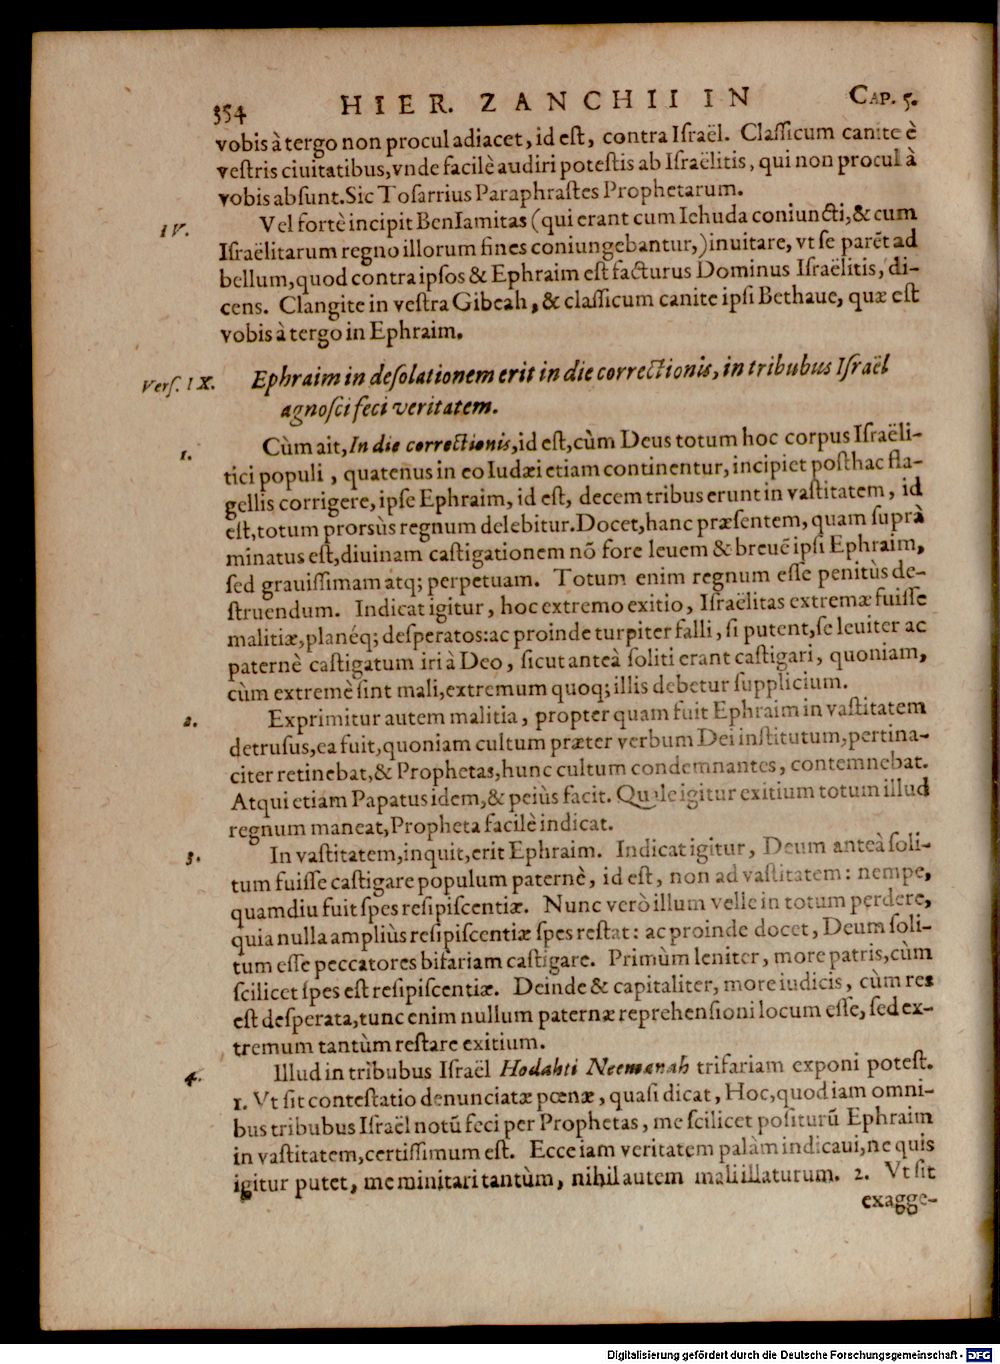 354 HIER. ZANCHII IN CAP. 5.
vobis à tergo non procul adiacet, id eſt, contra Iſraël. Claſſicum canite è
veſtris ciuitatibus, vnde facilè audiri poteſtis ab Iſraëlitis, qui non procul à
vobis abſunt. Sic Toſarrius Paraphraſtes Prophetarum.
IV. Vel fortè incipit BenIamitas (qui erant cum Iehuda coniuncti, & cum
Iſraëlitarum regno illorum fines coniungebantur,) inuitare, vt ſe parẽt ad
bellum, quod contra ipſos & Ephraim eſt facturus Dominus Iſraëlitis, di-
cens. Clangite in veſtra Gibeah, & claſſicum canite ipſi Bethaue, quæ eſt
vobis à tergo in Ephraim.
Verſ. IX. Ephraim in deſolationem erit in die correctionis, in tribubus Iſraël
agnoſci feci veritatem.
1. Cùm ait, In die correctionis, id eſt, cùm Deus totum hoc corpus Iſraëli-
tici populi, quatenus in eo Iudæi etiam continentur, incipiet poſthac fla-
gellis corrigere, ipſe Ephraim, id eſt, decem tribus erunt in vaſtitatem, id
eſt, totum prorsùs regnum delebitur. Docet, hanc præſentem, quam ſuprà
minatus eſt, diuinam caſtigationem nõ fore leuem & breuẽ ipſi Ephraim,
ſed grauiſſimam atq; perpetuam. Totum enim regnum eſſe penitùs de-
ſtruendum. Indicat igitur, hoc extremo exitio, Iſraëlitas extremæ fuiſſe
malitiæ, planéq; deſperatos: ac proinde turpiter falli, ſi putent, ſe leuiter ac
paternè caſtigatum iri à Deo, ſicut anteà ſoliti erant caſtigari, quoniam,
cùm extremè ſint mali, extremum quoq; illis debetur ſupplicium.
2. Exprimitur autem malitia, propter quam fuit Ephraim in vaſtitatem
detruſus, ea fuit, quoniam cultum præter verbum Dei inſtitutum, pertina-
citer retinebat, & Prophetas, hunc cultum condemnantes, contemnebat.
Atqui etiam Papatus idem, & peiùs facit. Quale igitur exitium totum illud
regnum maneat, Propheta facilè indicat.
3. In vaſtitatem, inquit, erit Ephraim. Indicat igitur, Deum anteà ſoli-
tum fuiſſe caſtigare populum paternè, id eſt, non ad vaſtitatem: nempe,
quamdiu fuit ſpes reſipiſcentiæ. Nunc verò illum velle in totum perdere,
quia nulla ampliùs reſipiſcentiæ ſpes reſtat: ac proinde docet, Deum ſoli-
tum eſſe peccatores bifariam caſtigare. Primùm leniter, more patris, cùm
ſcilicet ſpes eſt reſipiſcentiæ. Deinde & capitaliter, more iudicis, cùm res
eſt deſperata, tunc enim nullum paternæ reprehenſioni locum eſſe, ſed ex-
tremum tantùm reſtare exitium.
4. Illud in tribubus Iſraël Hodahti Neemanah trifariam exponi poteſt.
1. Vt ſit conteſtatio denunciatæ pœnæ, quaſi dicat, Hoc, quod iam omni-
bus tribubus Iſraël notũ feci per Prophetas, me ſcilicet poſiturũ Ephraim
in vaſtitatem, certiſſimum eſt. Ecce iam veritatem palàm indicaui, ne quis
igitur putet, me minitari tantùm, nihil autem mali illaturum. 2. Vt ſit
exagge-
Digitalisierung gefördert durch die Deutsche Forschungsgemeinschaft - DFG